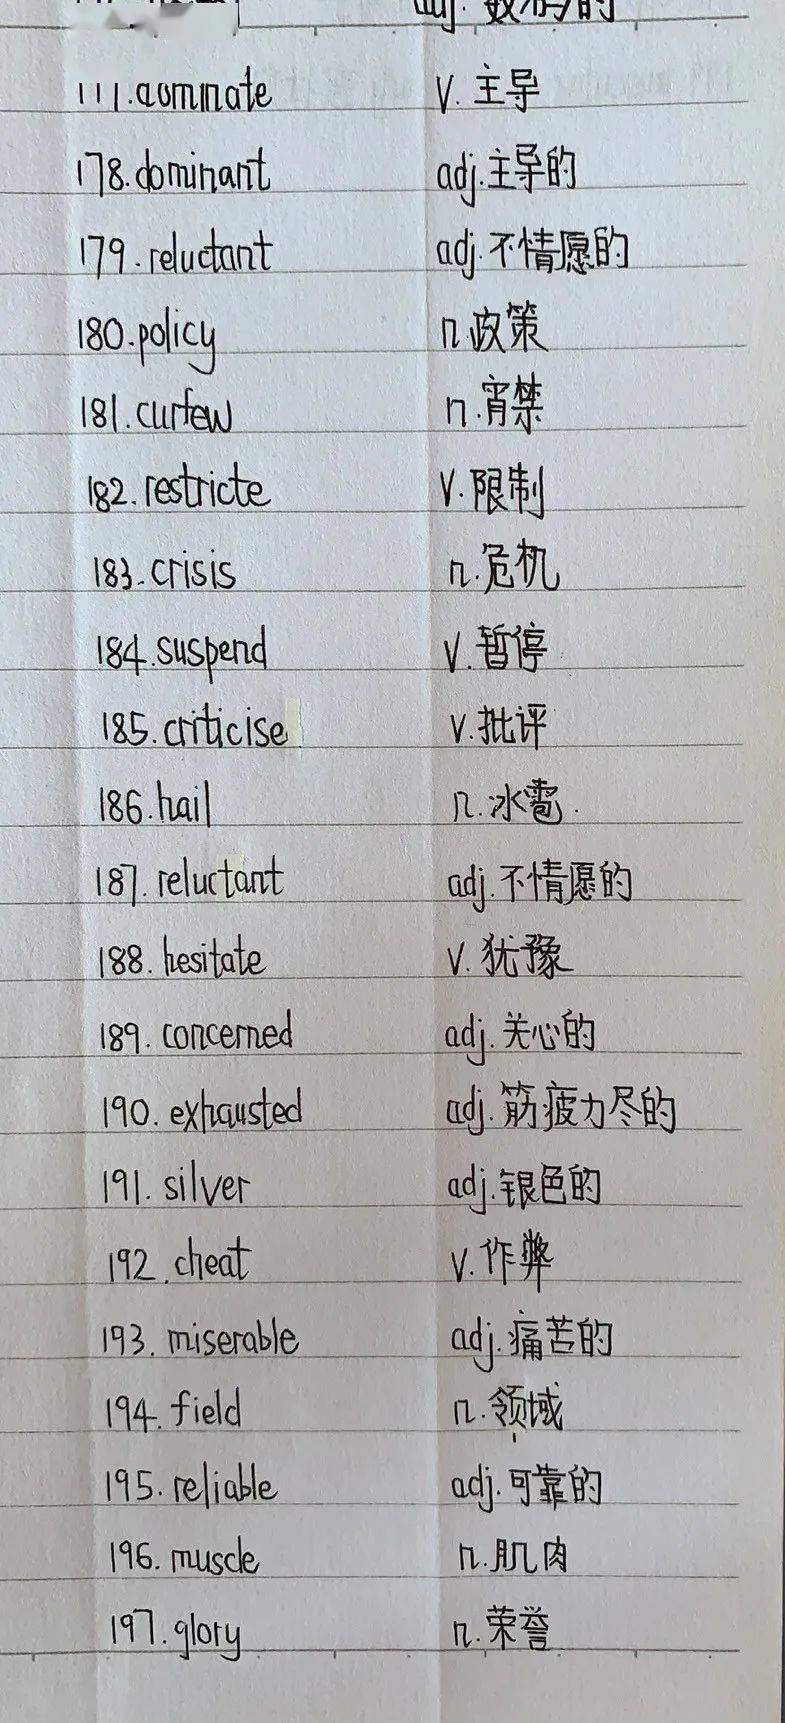 adj. 数码的
177.dominate v. 主导
178.dominant adj.主导的
179.reluctant adj.不情愿的
180.policy n.政策
181.curfew n.宵禁
182.restricte v.限制
183.crisis n.危机
184.suspend v.暂停
185.criticise v.批评
186.hail n.冰雹.
187.reluctant adj.不情愿的
188.hesitate v.犹豫
189.concerned adj.关心的
190.exhausted adj.筋疲力尽的
191.silver adj.银色的
192.cheat v.作弊
193.miserable adj.痛苦的
194.field n.领域
195.reliable adj.可靠的
196.muscle n.肌肉
197.glory n.荣誉